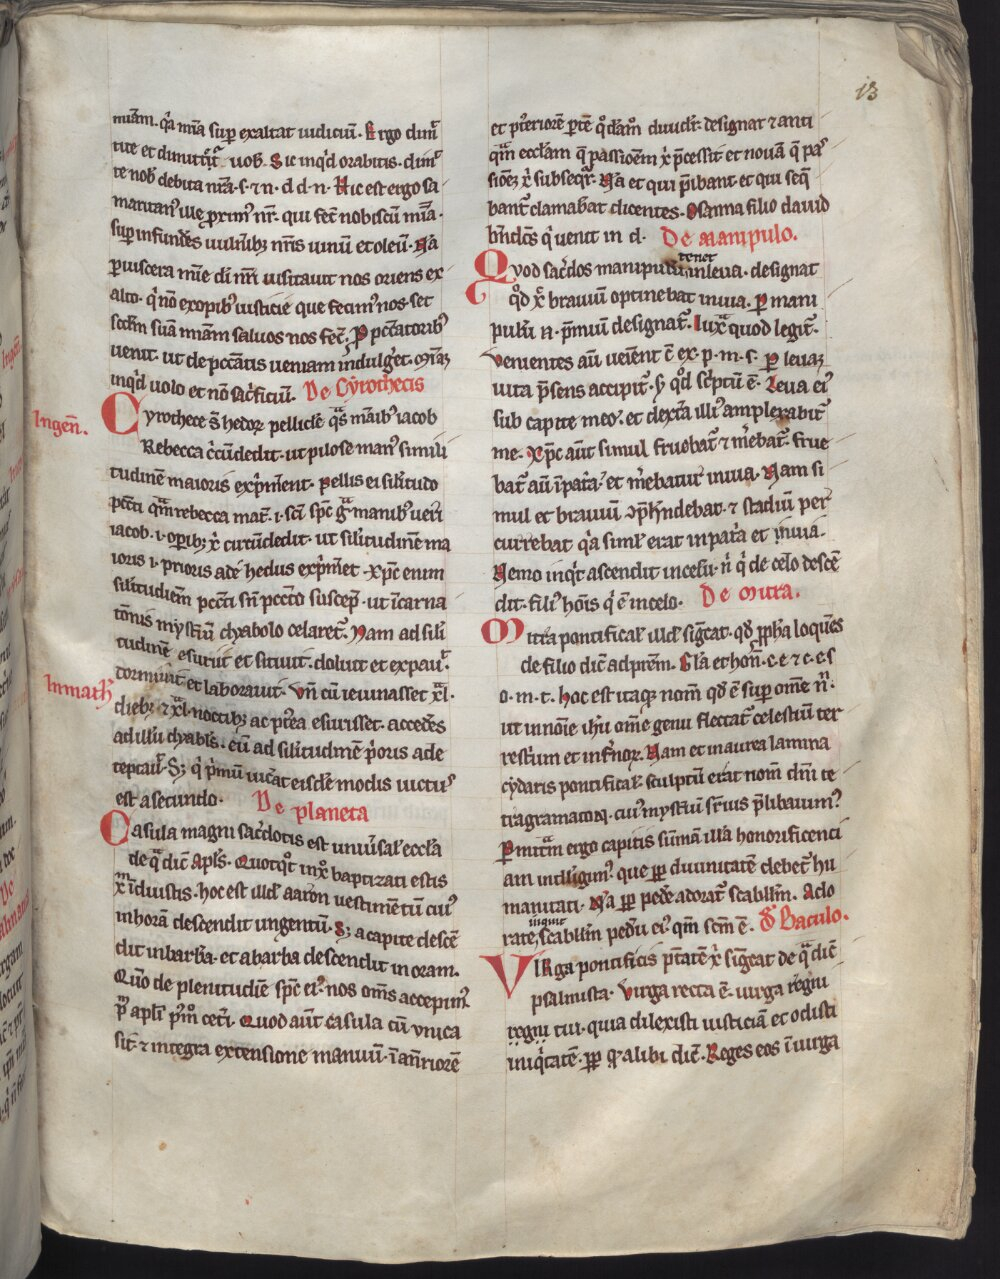 13
mīam. q̄a mīa sup exaltat iudiciū. Ergo dimī
tite et dimittit̄ uob̄. Sic inq̇d orabitis. dimī
te nob̄ debita nr̄a. s. ⁊ n. d. d. n. Hic est ergo sa
maritan᾿ ille proxim᾿ nr̄. qui fec̄ nobiscū mīa.
sup infundēs uulnib᾿ nr̄is uinū et oleū. Nā
p uiscera mīe di nr̄i uisitauit nos oriens ex
alto. q̇ nō ex opib᾿ iusticie que fecim᾿ nos. set
scd̄m suā mīam saluos nos fec̄. P pctatorib᾿
uenit. ut de pctātis ueniam indulgēt. mīaʒ
inq̇d uolo et nō sac̄ficiū. De Cyrothecis
Cyrothece s̄ hedoꝝ pellicle q̄s manib᾿ iacob
Rebecca c̄cūdedit. ut pilose man᾿ simili
Ingen̄.
tudinē maioris exp̄mēnt. Pellis ei silītudo
pcc̄i quā rebecca mat̄. i. sc̄i spc̄ ḡra manib᾿ ueri
iacob. i. opib᾿ x̄ circūdedit. ut silitudinē ma
ioris i. prioris ade hedus exp̄met. Xpc̄ enim
silitudiem pcc̄i sn̄ pccto suscep̄. ut īcarna
tōnis mystiū dyabolo celaret̄. Nam ad sili
tudinē esuriit et sitiuit. doluit et expauī.
dormiuit et laborauit. Vn̄ cū ieiunasset xl.
Inmath᾿
dieb᾿ ⁊ xl. noctib᾿ ac pt̄ea esurisset. accedēs
ad illū dyabls. eū ad silitudinē p̄oris ade
teptauī. Sʒ q̇ p̄mū uicāt eisdē modis uict᾿
est a secundo. De planeta
Casula magni sac̄dotis est uniūsal᾿ eccl̄a
de q̄ dic̄ Apls̄. Quotq̇t in x̄ baptizati estis
x̄m īduistis. hoc est illd̄ aaron uestimētū cui᾿
in horā descendit ungentū. Sʒ a capite descē
dit in barbā. et a barba descendit in oram.
Quō de plenitudīe spc̄ ei᾿ nos om̄s accepim᾿
p̄ apl̄i p᾿mo cet̄i. Quod aūt casula cū unica
sit. ⁊ integra extensione manuū. ī ant̄riorē
et pt̄eriorē ptē q̇dāmō diuidit᾿. designat ⁊ anti
quā eccl̄am q̄ passioēm x̄ p̄cessit et nouā q̄ pas᾿
sioēʒ x̄ subseq̇t᾿. Nā et qui p̄ibant et qui seq̄
bant᾿ clamabāt dicentes. Osanna filio dauid
bn̄dc̄s q̇ uenit in d. De manipulo.
tenet
Quod sac̄dos manipulū in leua. designat
q̇d x̄ brauiū optinebat in uia. P mani
pulū n. p̄miū designat̄. Iuxᵃ quod legit̄.
Venientes aū ueīent c̄ ex. p. m. s. p leuaʒ
uita p̄sens accipit̄. ꝩ q̇d sc̄ptū ē. Leua ei᾿
sub capite meo. et dext̄a illi᾿ amplexabit̄
me. Xpc̄ aūt simul fruebat̄ ⁊ m̄ebat̄. frue
bat̄ aū ī pat̄a᾿ et m̄ebatur in uia. Nam si
mul et brauiū ꝯp̄hndebat. ⁊ stadiū per
currebat q̄a simł erat in pat̄a et in uia.
Nemo inq̇t ascendit in celū. n̄ q̇ de celo descē
dit. fili᾿ hōis q̇ ē in celo. De mitra.
Mitra pontifical᾿ illd̄ siḡcat. q̇d p̄pha loquēs
de filio dic̄ ad pr̄em. Gl̄a et hon̄. c. e ⁊ c. e s
o. m. t. hoc est itaqʒ nom̄ q̇d ē sup om̄e n̄.
ut in noīe ihu om̄e genu flectat̄ celestiū ter
rest᾿um et infn̄oꝝ. Nam et in aurea lamina
cydaris pontifical᾿ sculptū erat nom̄ dn̄i te
tragramaton. cui᾿ mystiū sr̄ius p̄libauim᾿
P mit̄am ergo capitis sūmā illā honorificenci
am intelligim᾿ que pp̄ diuinitatē debet᾿ hu
manitati. Nā pp̄ pedē adorat᾿ scabll̄m. Ado
inquit
rate, scabll̄m pedū ei᾿ qm̄ scm̄ ē. De Baculo.
Virga pontificis p̄tatē x̄ siḡcat de q̄ dic̄
psalmista. Virga recta ē. uirga regni
regni tui. quia dilexisti iusticiā et odisti
iniq̇tatē. pp̄ q̇ alibi dic̄. Reges eos ī uirga